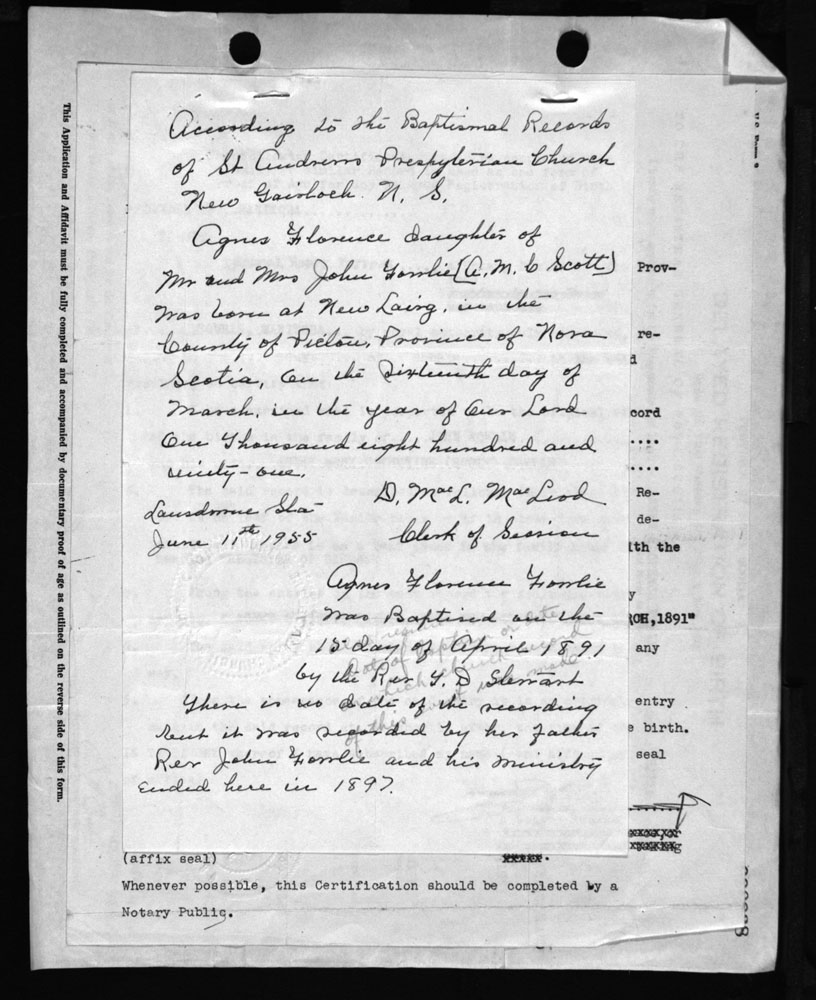 According to the Baptismal Records
of St Andrews Presbyterian Church
New Gairloch. N. S.
Agnes Florence daughter of
Mr and Mrs John Fowlie (A. M. C Scott)
was born at New Lairg, in the
County of Pictou, Province of Nova
Scotia, On the Sixteenth day of
March, in the year of Our Lord
One Thousand eight hundred and
ninety-one.
D. MacL. MacLeod
Lansdowne Sta
June 11th 1955 Clerk of Session
Agnes Florence Fowlie
was Baptised on the
15 day of April 1891
by the Rev. T. D Stewart
There is no date of the recording
but it was recorded by her father
Rev John Fowlie and his ministry
ended here in 1897.
This Application and Affidavit must be fully completed and accompanied by documentary proof of age as outlined on the reverse side of this form.
Prov-
re-
cord
....
....
Re-
de-
ith the
y
RCH, 1891"
any
entry
e birth.
seal
(affix seal)
Whenever possible, this Certification should be completed by a
Notary Public.